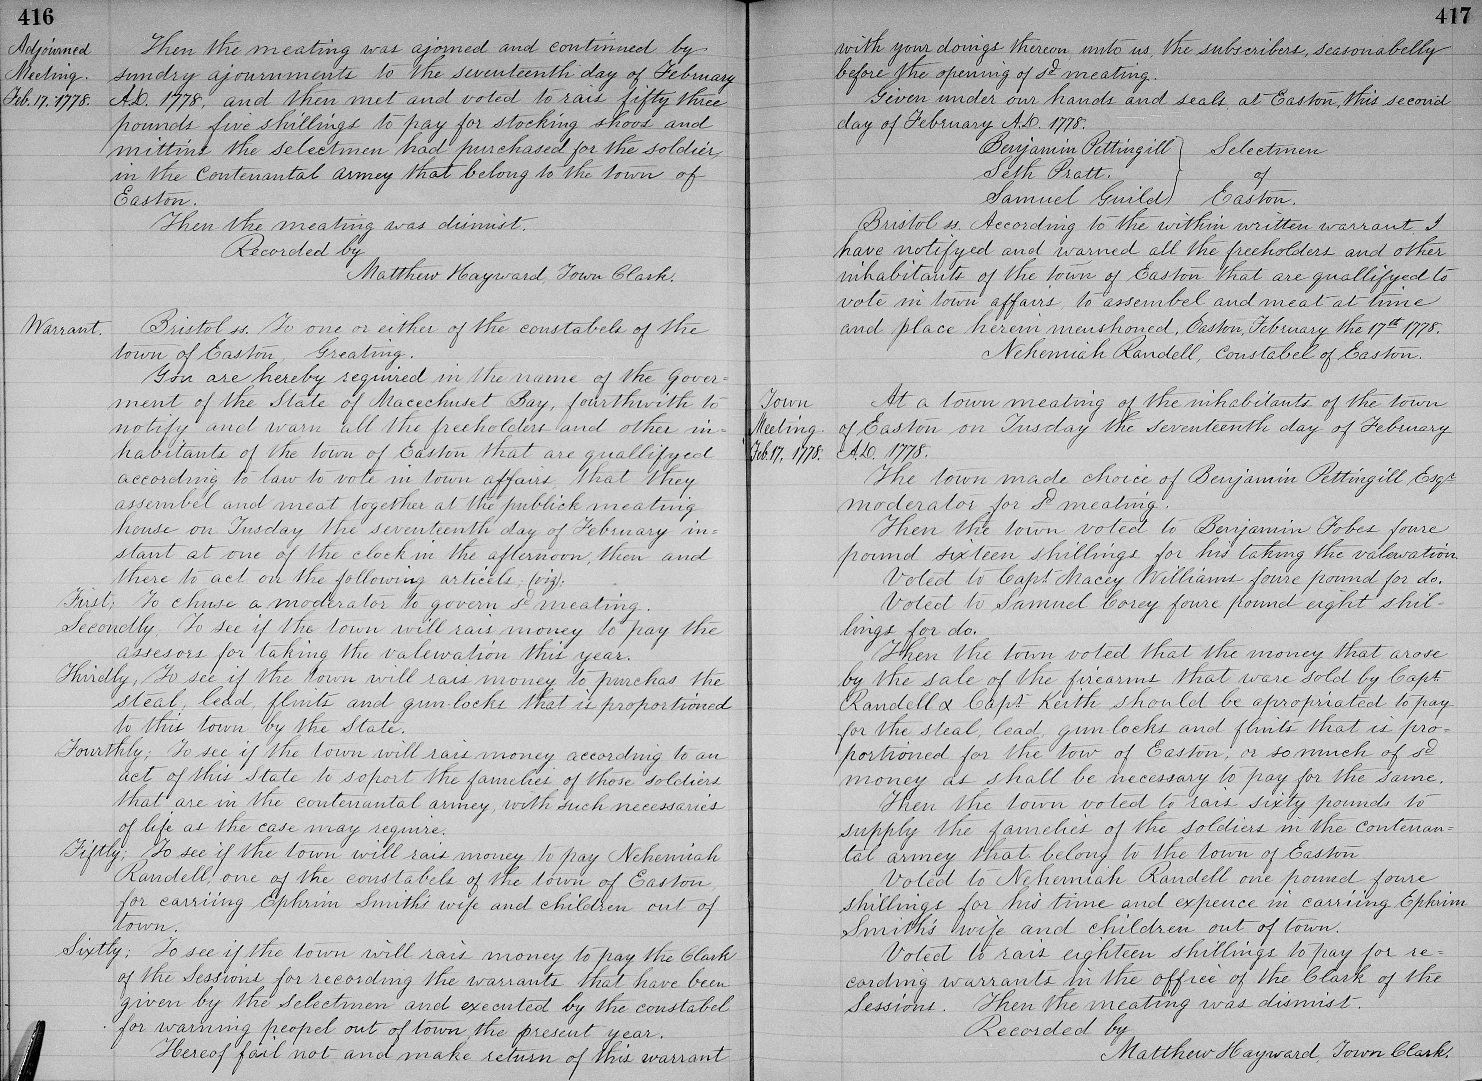 416
Adjourned
Meeting.
Feb. 17. 1778.
Then the meating was ajorned and continued by
sundry ajournments to the seventeenth day of February
A.D. 1778, and then met and voted to rais fifty three
pounds five shillings to pay for stocking shoos and
mittins the selectmen had purchased for the soldier,
in the contenantal armey that belong to the town of
Easton.
Then the meating was dismist.
Recorded by
Matthew Hayward, Town Clark.
Warrant.
Bristol ss. To one or either of the constabels of the
town of Easton, Greating.
You are hereby required in the name of the Gover=
ment of the State of Macechuset Bay, fourthwith to
notify and warn all the freeholders and other in=
habitants of the town of Easton that are quallifyed
according to law to vote in town affairs, that they
assembel and meat together at the publick meating
house on Tusday the seventeenth day of February in=
stant at one of the clock in the afternoon, then and
there to act on the following articels, (viz).
First; To chuse a moderator to govern sd meating.
Secondly, To see if the town will rais money to pay the
assesors for taking the valewation this year.
Thirdly; To see if the town will rais money to purchas the
steal, lead, flints and gun-locks that is proportioned
to this town by the State.
Fourthly; To see if the town will rais money according to an
act of this State to soport the famelies of those soldiers
that are in the contenantal armey, with such necessaries
of life as the case may require.
Fiftly; To see if the town will rais money to pay Nehemiah
Randell, one of the constabels of the town of Easton,
for carriing Ephrim Smith's wife and children out of
town.
Sixtly; To see if the town will rais money to pay the Clark
of the Sessions for recording the warrants that have been
given by the selectmen and executed by the constabel
for warning peopel out of town, the present year.
Hereof fail not and make return of this warrant
417
with your doings thereon unto us, the subscribers, seasonabelly
before the opening of sd meating.
Given under our hands and seals at Easton, this second
day of February A.D. 1778.
Benjamin Pettingill } Selectmen
Seth Pratt. } of
Samuel Guild } Easton.
Bristol ss. According to the within written warrant, I
have notifyed and warned all the freeholders and other
inhabitants of the town of Easton that are quallifyed to
vote in town affairs, to assembel and meat at time
and place herein menshoned, Easton, February the 17th 1778.
Nehemiah Randell, constabel of Easton.
Town
Meeting.
Feb. 17. 1778.
At a town meating of the inhabitants of the town
of Easton on Tusday the seventeenth day of February
A.D. 1778.
The town made choice of Benjamin Pettingill Esqr
moderator for sd meating.
Then the town voted to Benjamin Fobes foure
pound sixteen shillings for his taking the valewation
Voted to Capt Macey Williams foure pound for do.
Voted to Samuel Corey foure pound eight shil-
lings for do.
Then the town voted that the money that arose
by the sale of the firearms that ware sold by Capt
Randell & Capt Keith should be apropriated to pay
for the steal, lead, gun locks and flints that is pro=
portioned for the tow of Easton, or so much of sd
money as shall be necessary to pay for the same.
Then the town voted to rais sixty pounds to
supply the famelies of the soldiers in the contenan=
tal armey that belong to the town of Easton
Voted to Nehemiah Randell one pound foure
shillings for his time and expence in carriing Ephrim
Smith's wife and children out of town.
Voted to rais eighteen shillings to pay for re=
cording warrants in the office of the Clark of the
Sessions. Then the meating was dismist.
Recorded by
Matthew Hayward, Town Clark.